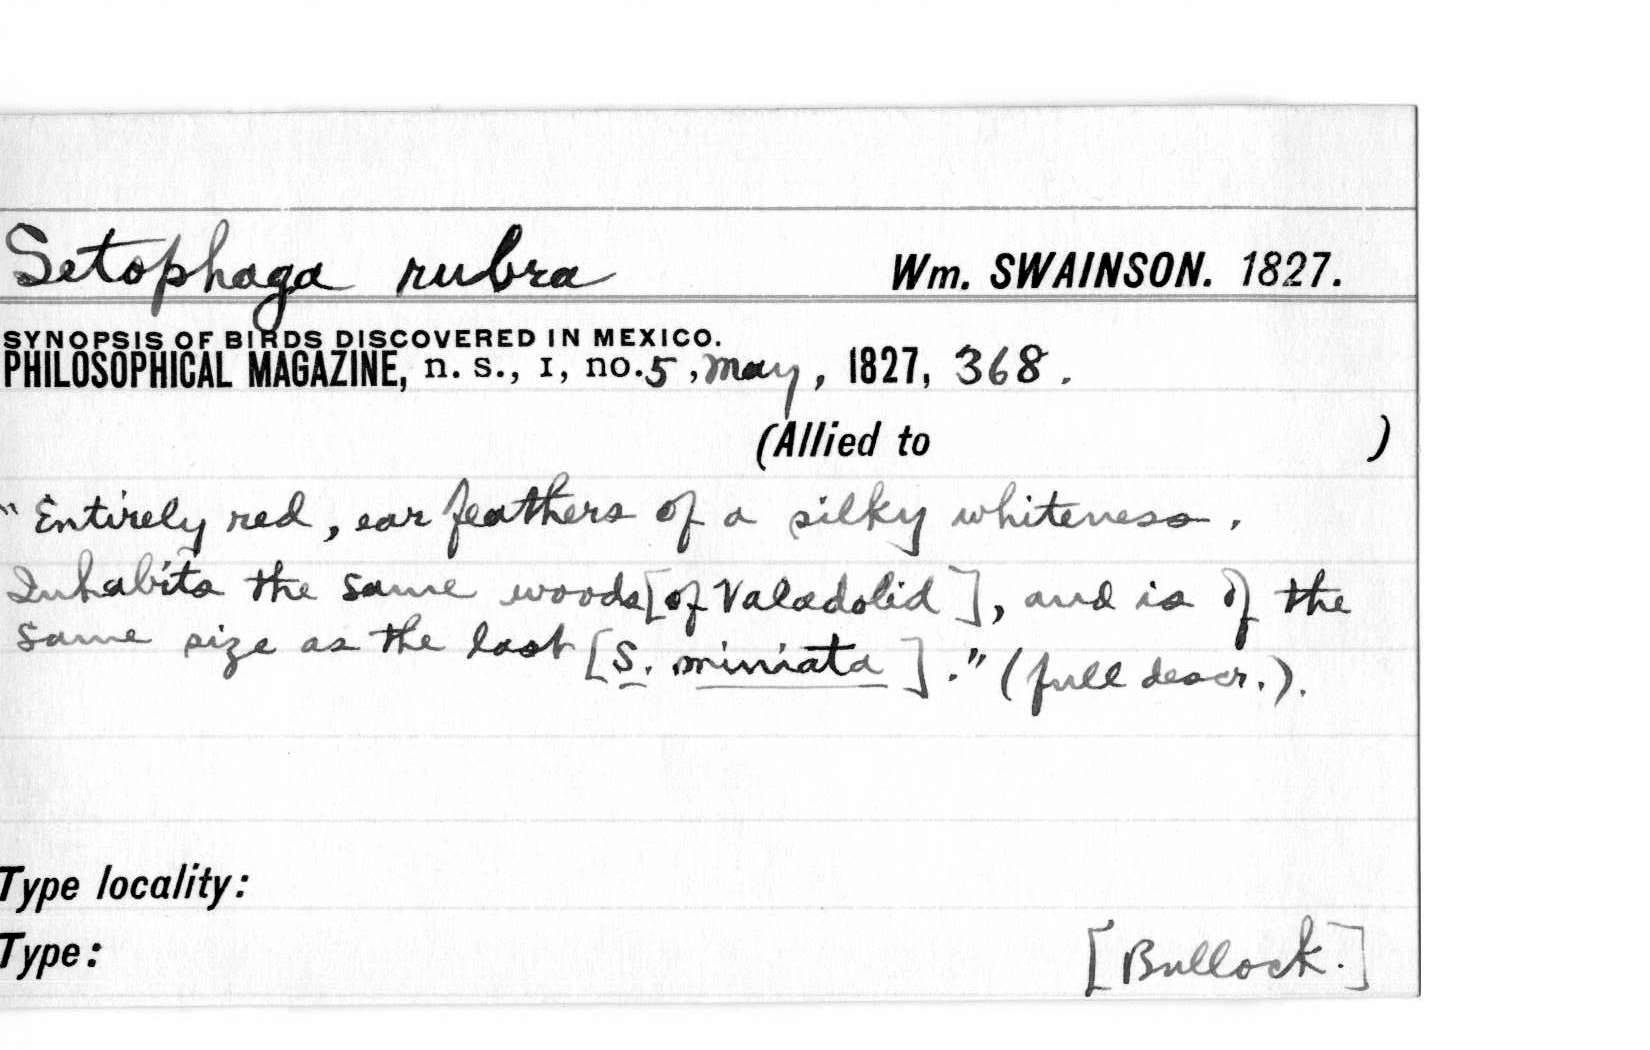 Setophaga rubra Wm. SWAINSON. 1827.
SYNOPSIS OF BIRDS DISCOVERED IN MEXICO.
PHILOSOPHICAL MAGAZINE, n. s., I, no. 5, May, 1827, 368.
(Allied to )
"Entirely red, ear feathers of a silky whiteness.
Inhabits the same woods [of Valadolid], and is of the
same size as the last [S. miniata]." (full descr.).
Type locality:
Type: [Bullock.]